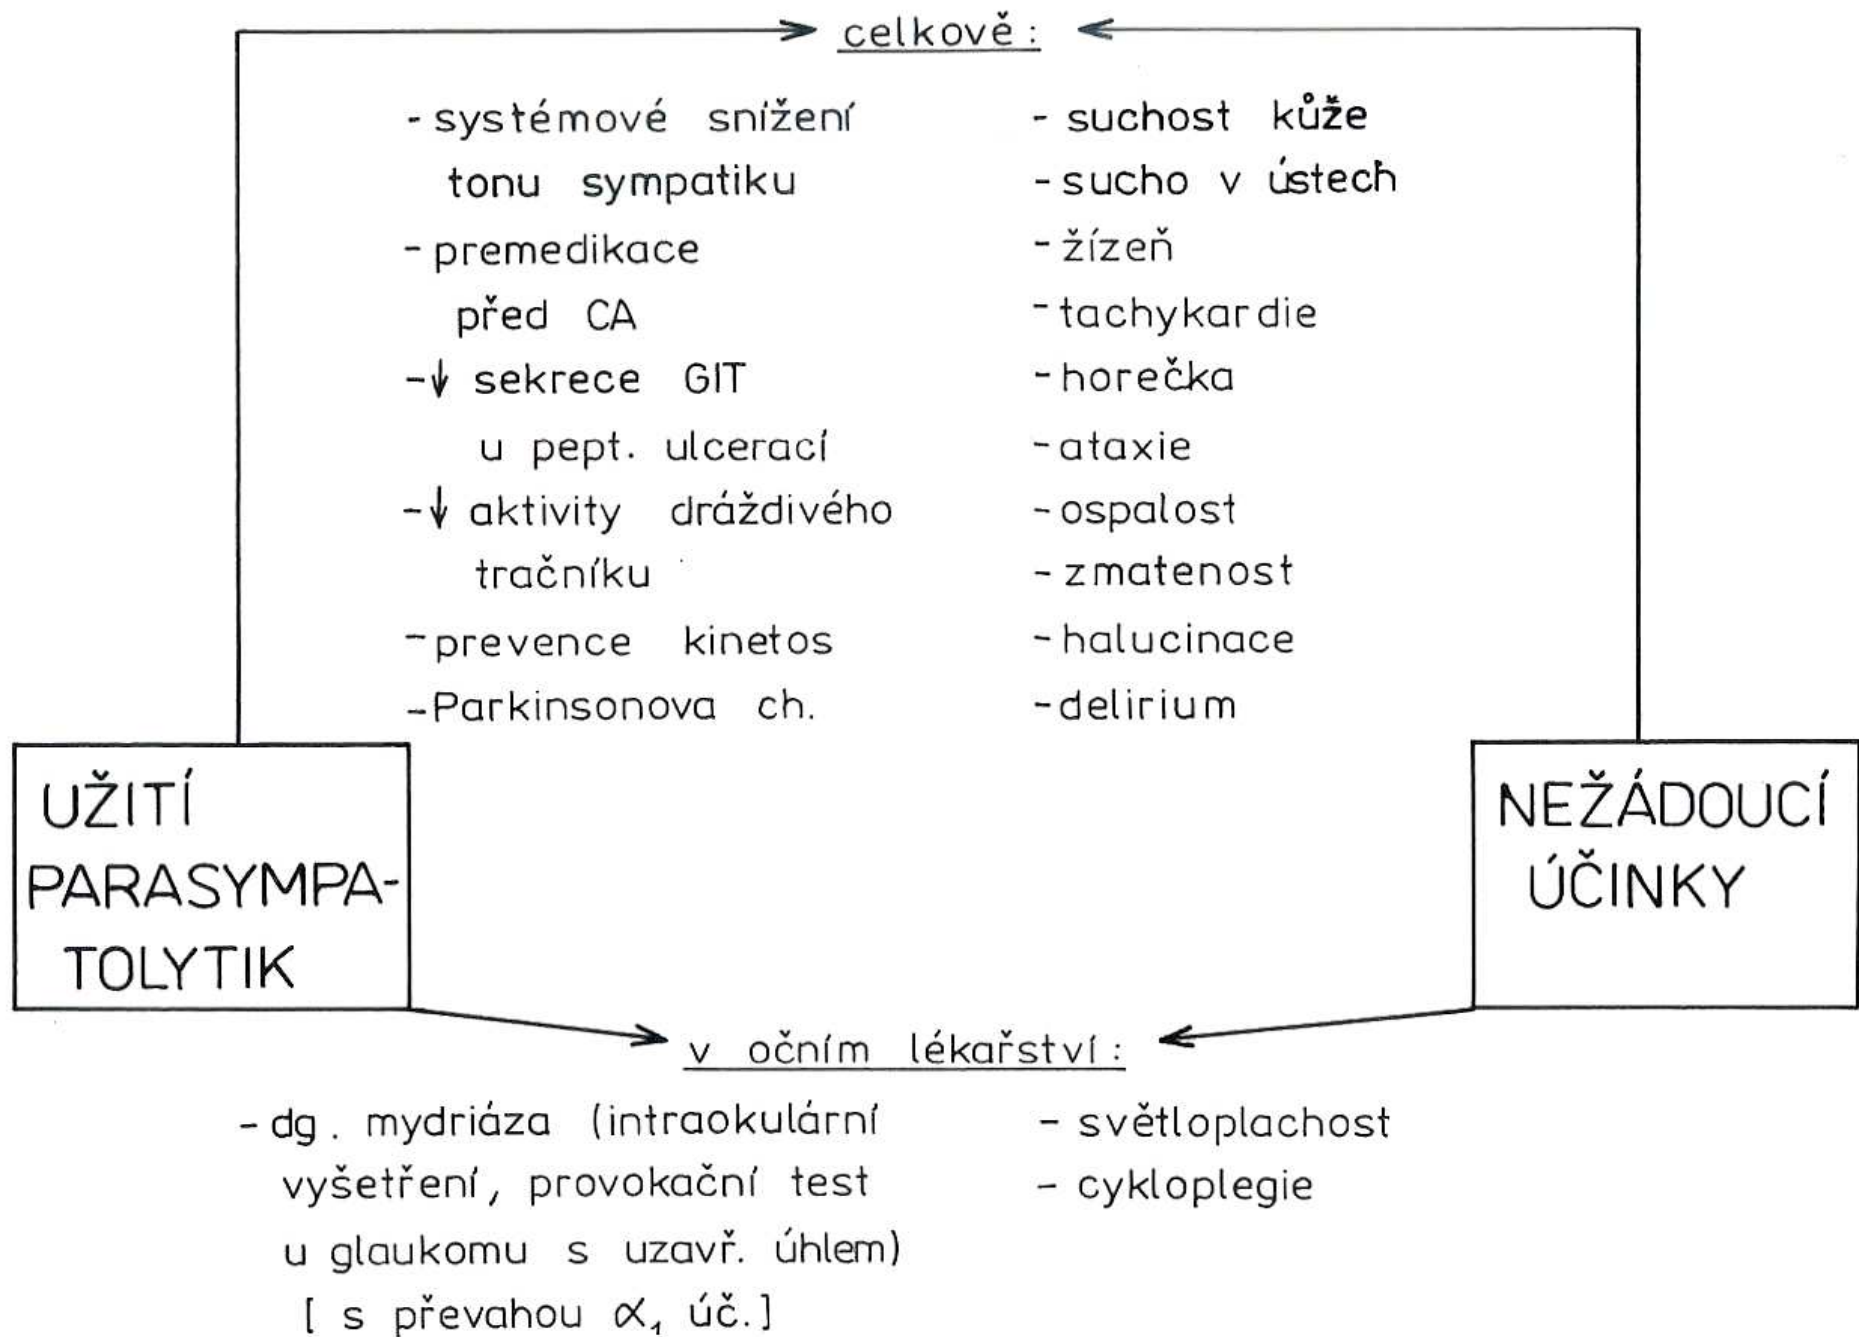 celkově:
- systémové snížení
tonu sympatiku
- premedikace
před CA
-↓ sekrece GIT
u pept. ulcerací
-↓ aktivity dráždivého
tračníku
- prevence kinetos
- Parkinsonova ch.
- suchost kůže
- sucho v ústech
- žízeň
- tachykardie
- horečka
- ataxie
- ospalost
- zmatenost
- halucinace
- delirium
UŽITÍ
PARASYMPA-
TOLYTIK
NEŽÁDOUCÍ
ÚČINKY
v očním lékařství:
- dg. mydriáza (intraokulární
vyšetření, provokační test
u glaukomu s uzavř. úhlem)
[ s převahou α₁ úč.]
- světloplachost
- cykloplegie